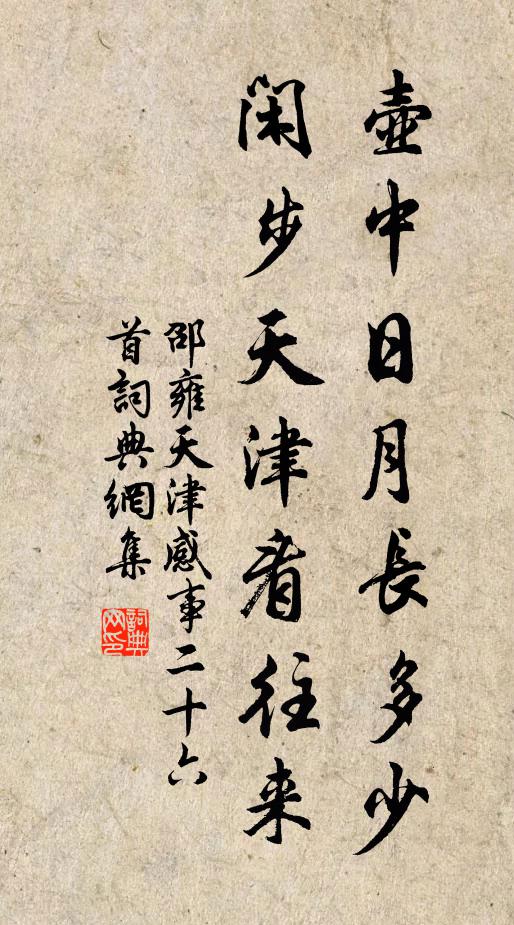 壺中日月長多少
閑步天津看往来
邵雍天津感事二十六
首詞典網集
詞典
网印